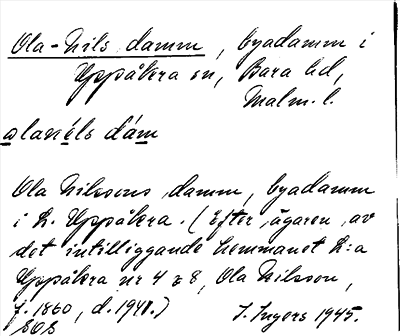 Ola-Nils damm, byadamm i
Uppåkra sn, Bara hd,
Malm. l.
olanéls dám
Ola Nilssons damm, byadamm
i L. Uppåkra. (Efter ägaren av
det intilliggande hemmanet L:a
Uppåkra nr 4 & 8, Ola Nilsson,
f. 1860, d. 1941.)
I. Ingers 1945.